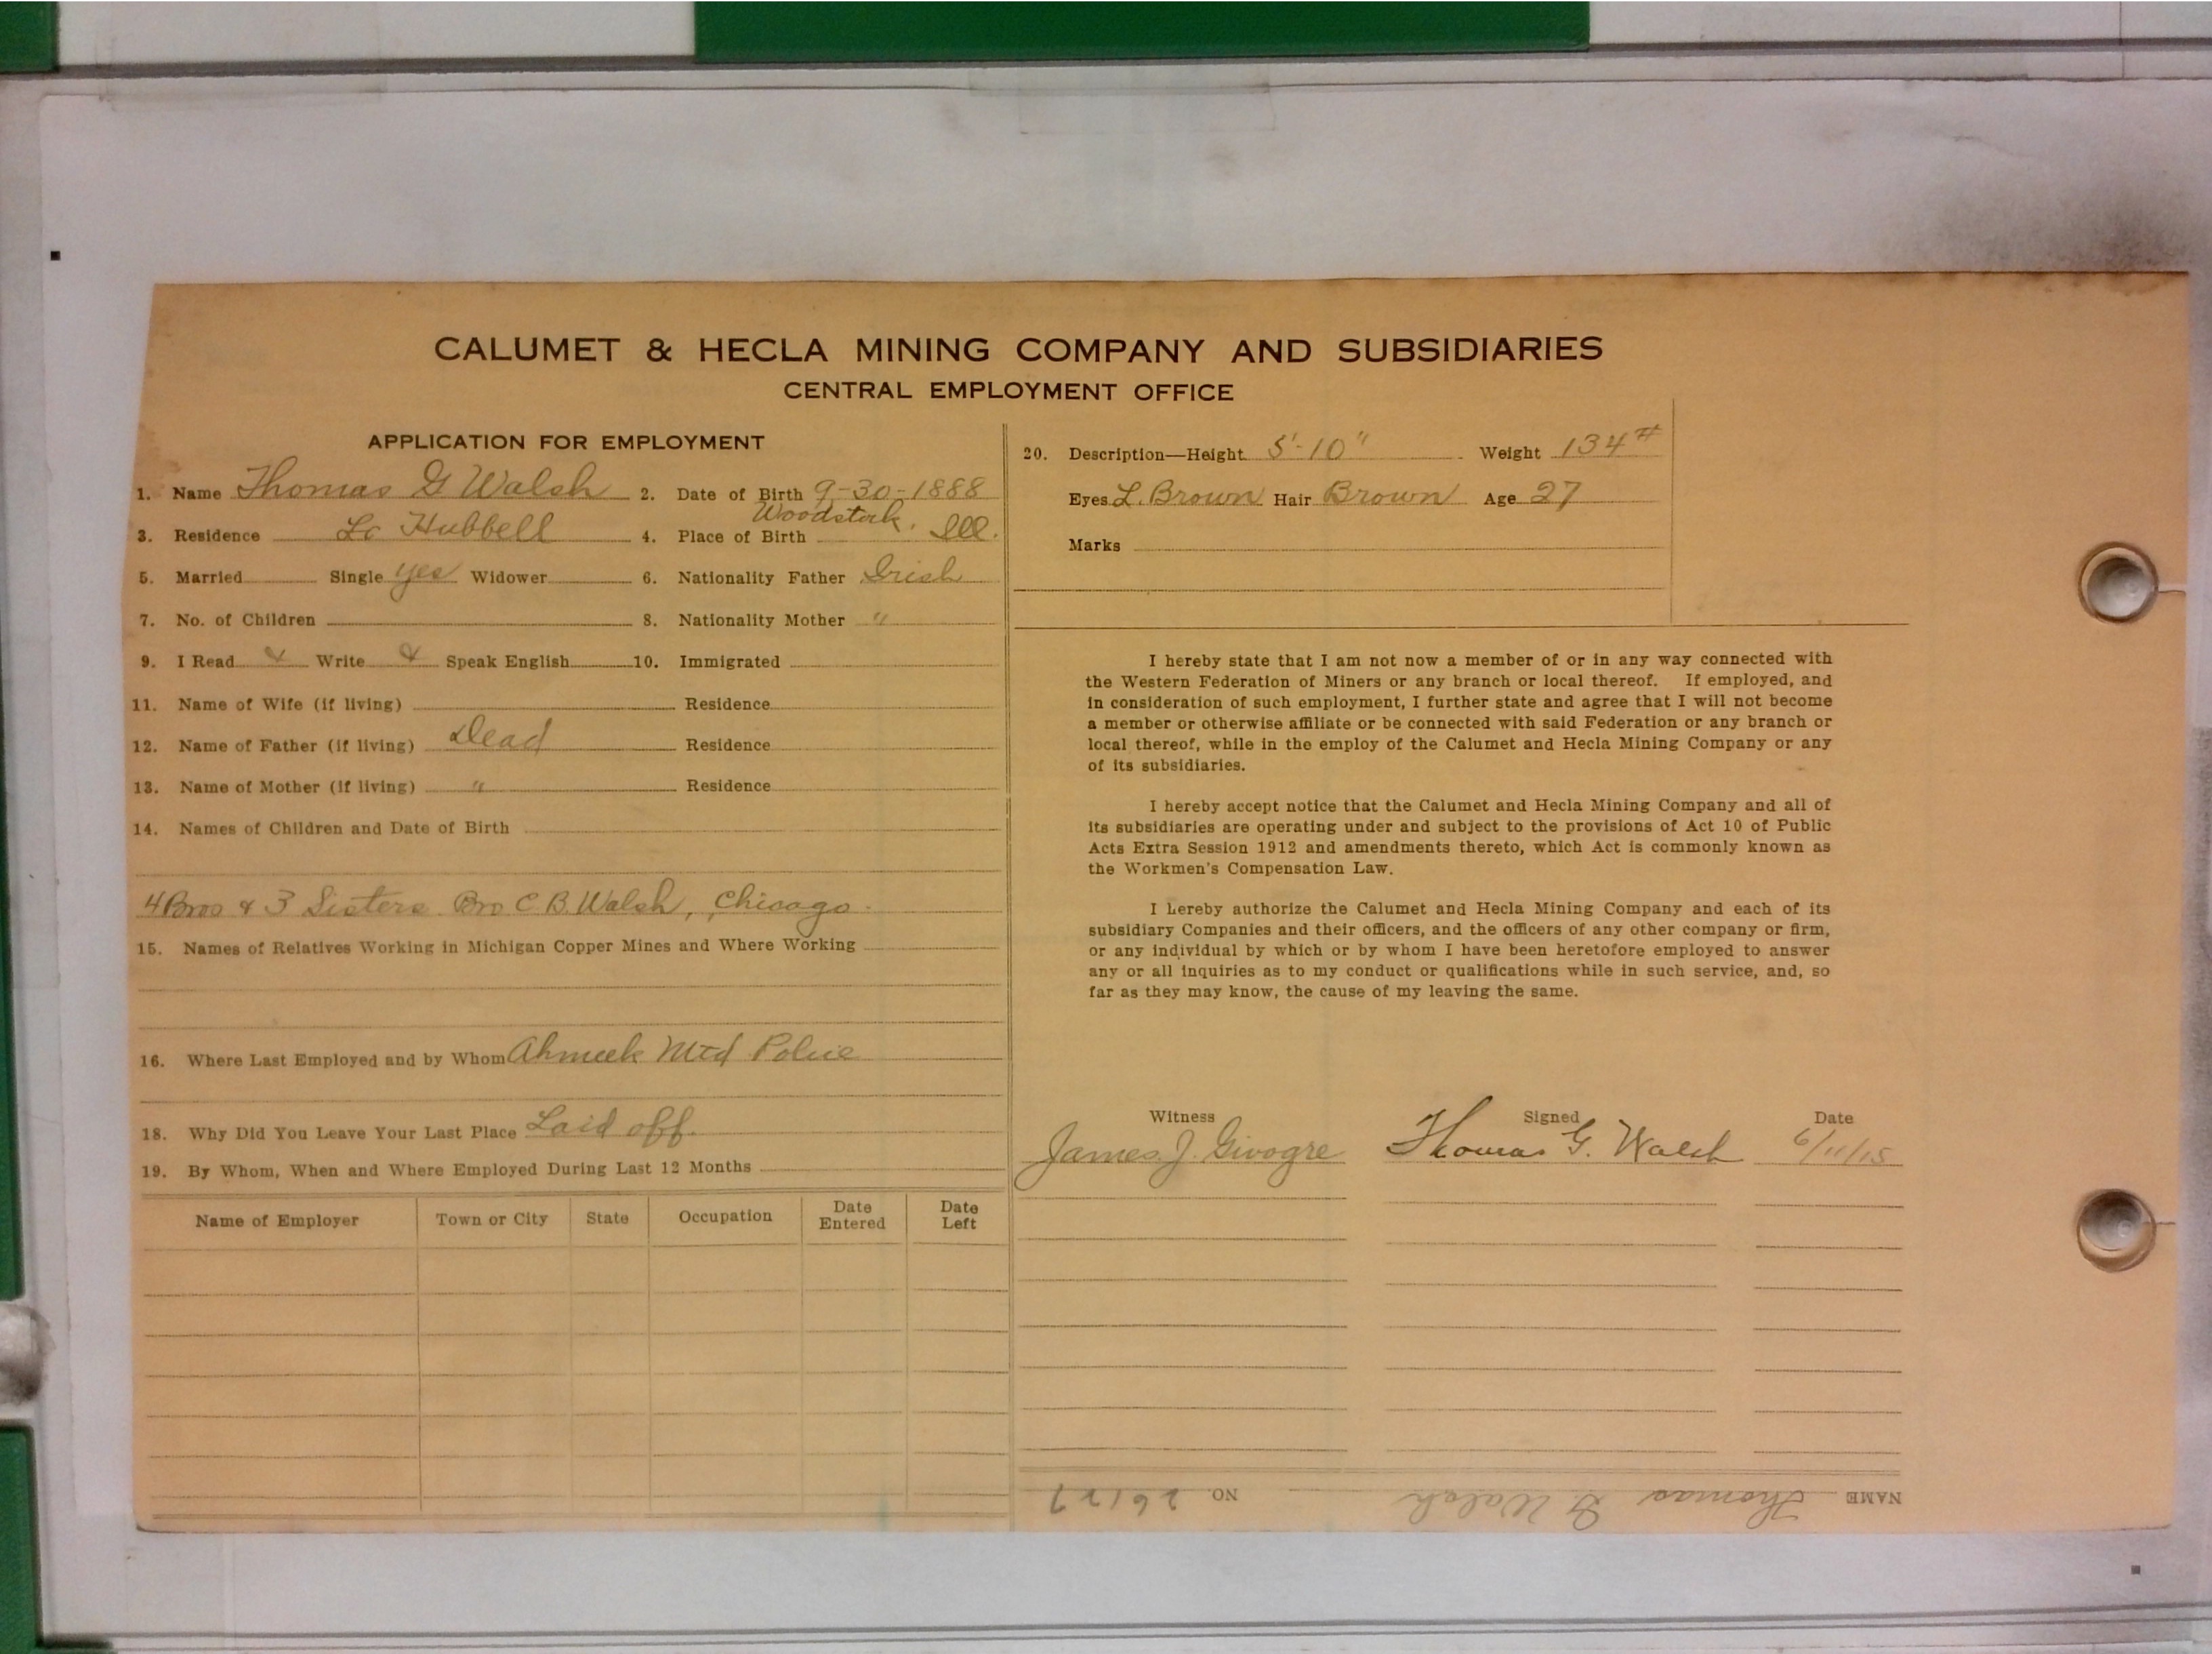 CALUMET & HECLA MINING COMPANY AND SUBSIDIARIES
CENTRAL EMPLOYMENT OFFICE
APPLICATION FOR EMPLOYMENT
1. Name Thomas G Walsh 2. Date of Birth 9-30-1888
3. Residence Lc Hubbell 4. Place of Birth Woodstock, Ill.
5. Married Single yes Widower 6. Nationality Father Irish
7. No. of Children 8. Nationality Mother "
9. I Read & Write & Speak English 10. Immigrated
11. Name of Wife (if living) Residence
12. Name of Father (if living) Dead Residence
13. Name of Mother (if living) " Residence
14. Names of Children and Date of Birth
4 Bros & 3 Sisters. Bro C B. Walsh, Chicago.
15. Names of Relatives Working in Michigan Copper Mines and Where Working
16. Where Last Employed and by Whom Ahmeek Mtd Police
18. Why Did You Leave Your Last Place Laid off.
19. By Whom, When and Where Employed During Last 12 Months
Name of Employer Town or City State Occupation Date Entered Date Left
20. Description—Height 5'-10" Weight 134#
Eyes L. Brown Hair Brown Age 27
Marks
I hereby state that I am not now a member of or in any way connected with
the Western Federation of Miners or any branch or local thereof. If employed, and
in consideration of such employment, I further state and agree that I will not become
a member or otherwise affiliate or be connected with said Federation or any branch or
local thereof, while in the employ of the Calumet and Hecla Mining Company or any
of its subsidiaries.
I hereby accept notice that the Calumet and Hecla Mining Company and all of
its subsidiaries are operating under and subject to the provisions of Act 10 of Public
Acts Extra Session 1912 and amendments thereto, which Act is commonly known as
the Workmen's Compensation Law.
I Lereby authorize the Calumet and Hecla Mining Company and each of its
subsidiary Companies and their officers, and the officers of any other company or firm,
or any individual by which or by whom I have been heretofore employed to answer
any or all inquiries as to my conduct or qualifications while in such service, and, so
far as they may know, the cause of my leaving the same.
Witness Signed Date
James J. Givogre Thomas G. Walsh 6/11/15
NAME Thomas G Walsh NO. 26127